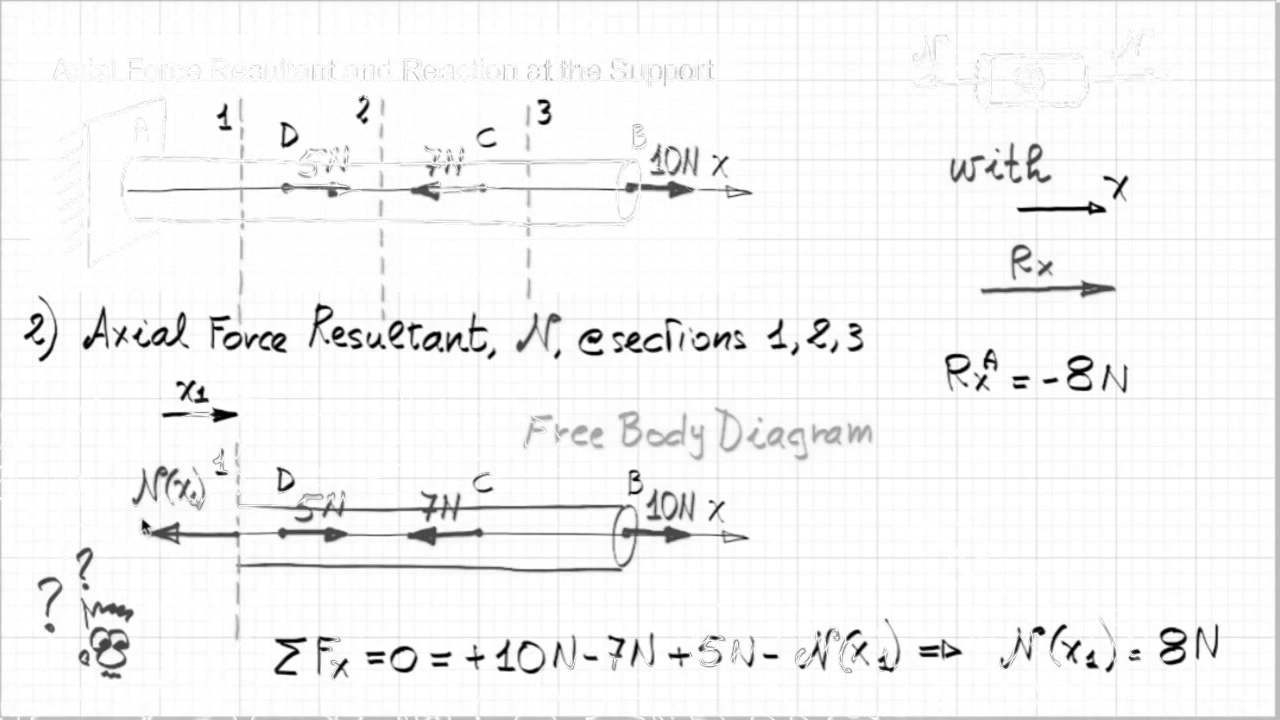 Axial Force Resultant and Reaction at the Support
N N
A 1 D 5N 2 7N C 3 B 10N x
with x
Rx
2) Axial Force Resultant, N, @ sections 1,2,3
RxA = -8N
x1
Free Body Diagram
N(x1) 1 D 5N 7N C B 10N x
? ?
ΣFx = 0 = +10N - 7N + 5N - N(x1) => N(x1) = 8N